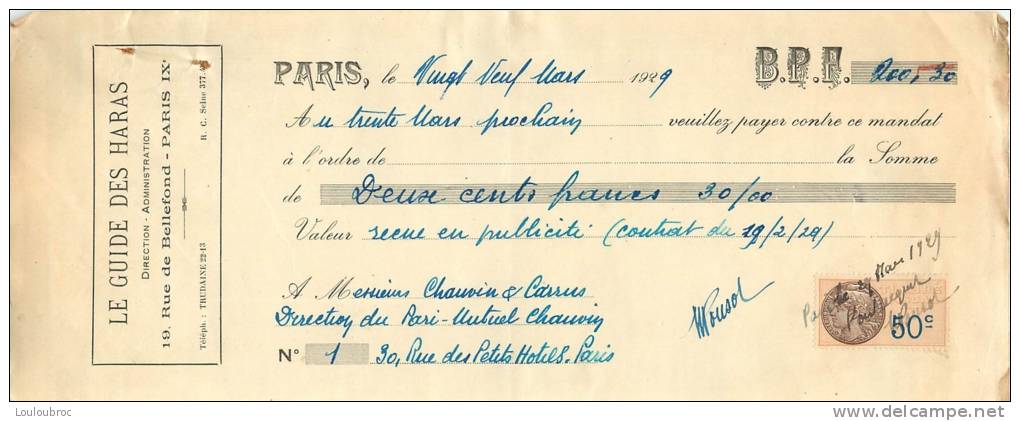 LE GUIDE DES HARAS
DIRECTION - ADMINISTRATION
19, Rue de Bellefond - PARIS IXe
Téléph : TRUDAINE 22-13
R. C. Seine 377.
PARIS, le Vingt Neuf Mars 1929
B.P.F. 200,30
Au trente Mars prochain veuillez payer contre ce mandat
à l'ordre de la Somme
de Deux cents francs 30/00
Valeur recue en publicité (contrat du 19/2/29)
A Messieurs Chauvin & Carrus
Direction du Pari-Mutuel Chauvin
N° 1 30, Rue des Petits Hotels. Paris
le 29 Mars 1929
50c
Louloubroc
www.delcampe.net